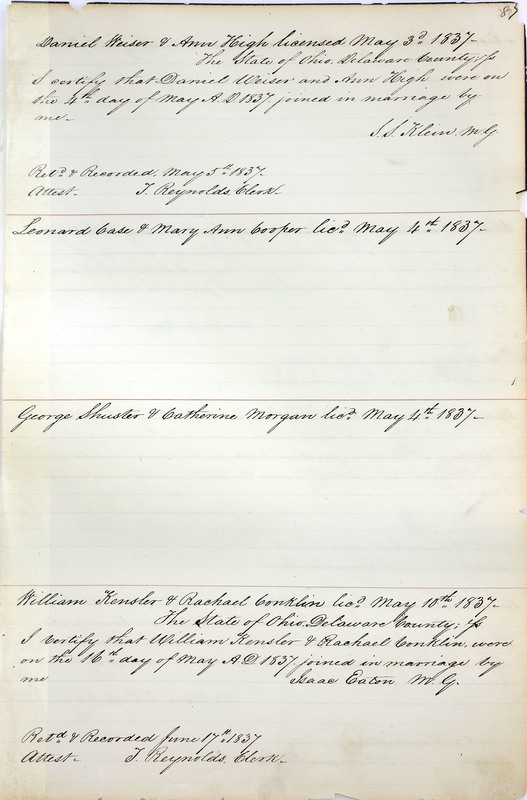 87
Daniel Weiser & Ann High licensed May 3d 1837-
The State of Ohio Delaware County; ss
I certify that Daniel Weiser and Ann High were on
the 4th day of May A.D. 1837 joined in marriage by
me-
S. S. Klein, M.G.
Retd & Recorded, May 5th 1837.
Attest- T. Reynolds, Clerk-
Leonard Case & Mary Ann Cooper licd May 4th 1837-
George Shuster & Catherine Morgan licd May 4th 1837-
William Kensler & Rachael Conklin licd May 10th 1837-
The State of Ohio Delaware County; ss
I Certify that William Kensler & Rachael Conklin, were
on the 16th day of May A.D. 1837 joined in marriage by
me Isaac Eaton M.G.
Retd & Recorded June 17th 1837
Attest- T. Reynolds, Clerk-